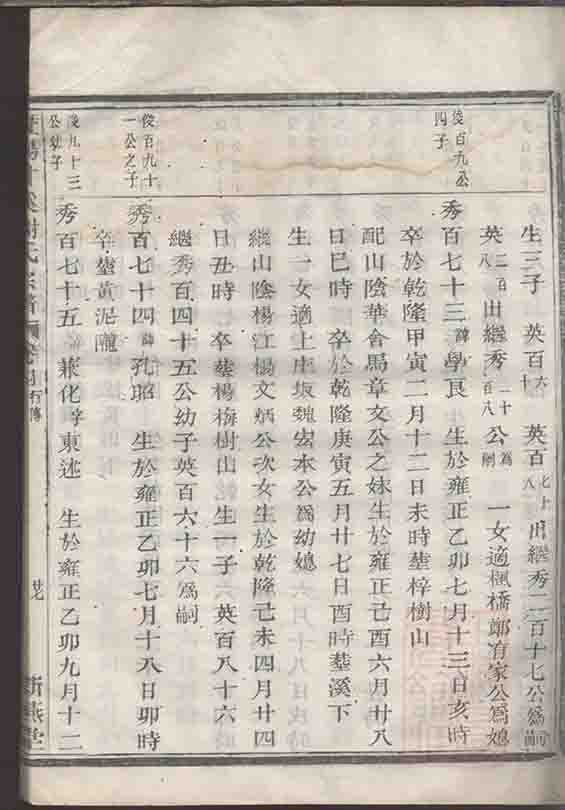 生三子 英百六十 英百七十八出繼秀二百十七公爲嗣
英二百八出繼秀二十百八公爲嗣 一女適楓橋鄭
俊百九公四子
秀百七十三諱學良 生於雍正乙卯七月十三日亥時
卒於乾隆甲寅二月十二日未時塟梓樹山
配山陰華舍馬章文公之妹生於雍正己酉六月廿八
日巳時 卒於乾隆庚寅五月廿七日酉時塟溪下
生一女適上庄坂魏宏本公爲幼媳
繼山陰楊江楊文炳公次女生於乾隆己未四月廿四
日丑時 卒塟楊梅樹山 生一子 英百八十六
繼秀百四十五公幼子英百六十六爲嗣
俊百九十一公之子
秀百七十四諱孔昭 生於雍正乙卯七月十八日卯時
卒塟黄泥隴
俊九十三公幼子
秀百七十五 兼化字東述 生於雍正乙卯九月十二
氏宗譜 行傳